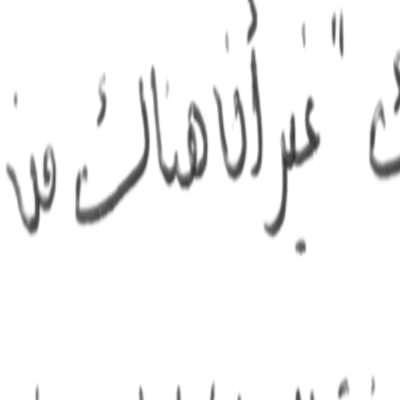 " غير أن هناك من